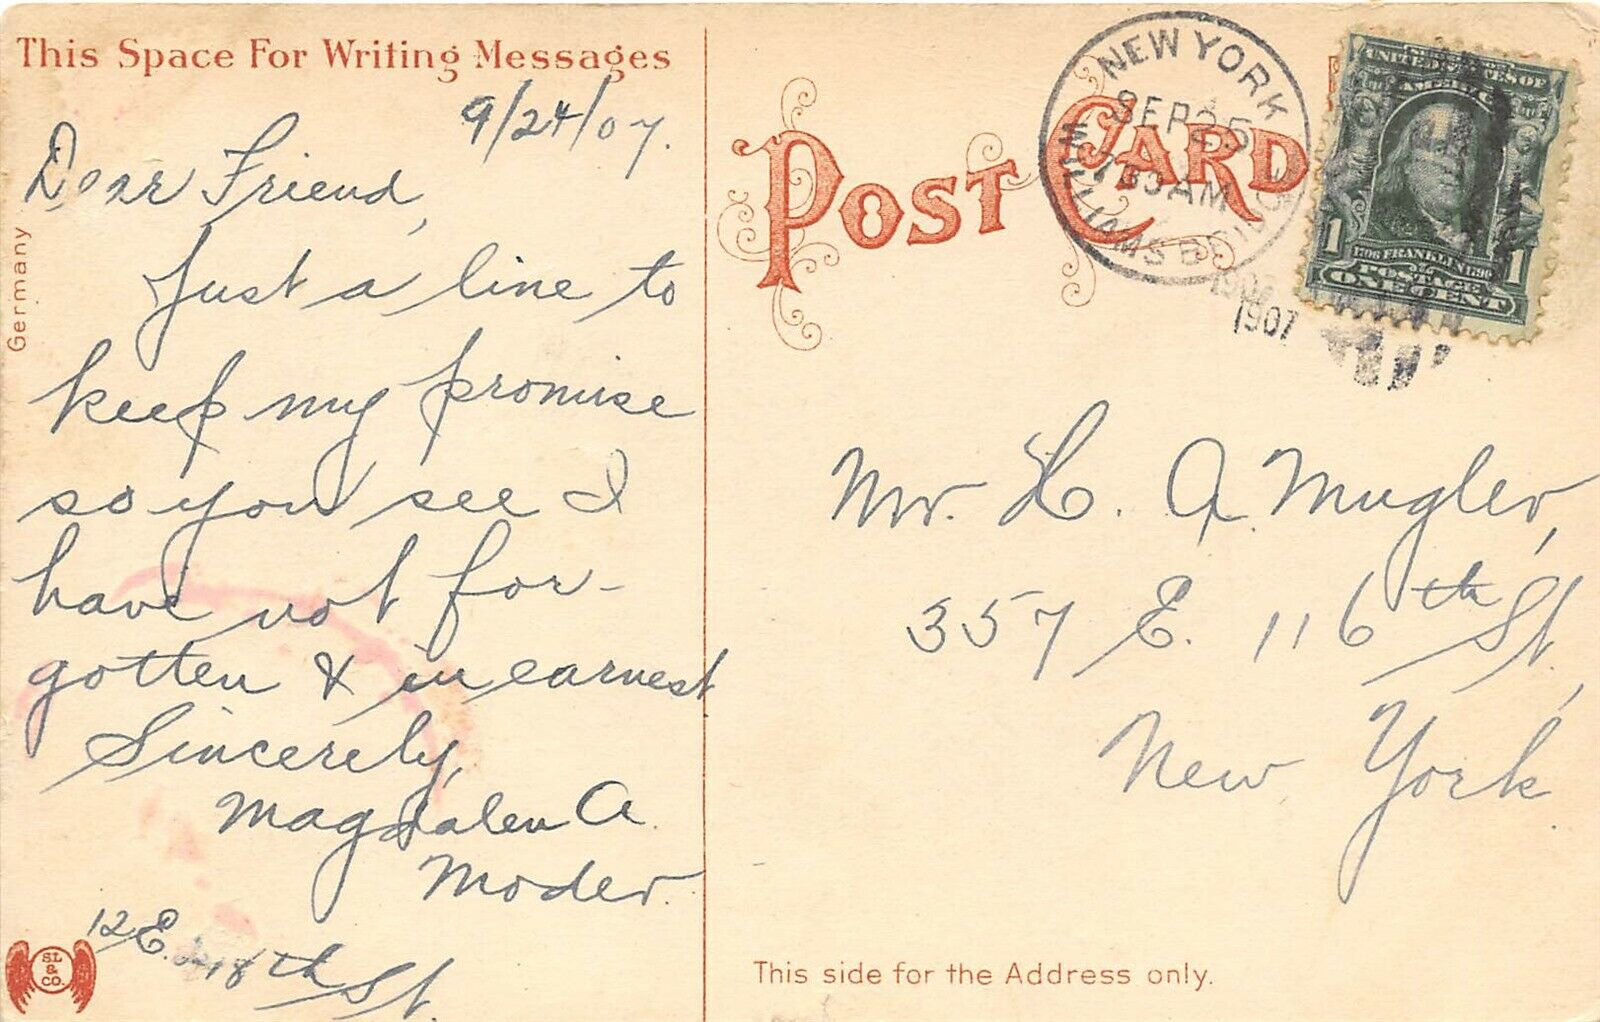 This Space For Writing Messages
9/24/07.
Dear Friend,
Just a line to
keep my promise
so you see I
have not for-
gotten & in earnest
Sincerely,
Magdalen A.
Moder.
12 E. 18th St.
Germany
SL
&
CO.
POST CARD
NEW YORK
SEP 25
7 30 AM
WILLIAMSBRIDGE
1907
SERIES 1902
UNITED STATES OF
AMERICA
1706 FRANKLIN 1790
1 1
POSTAGE
ONE CENT
Mr. L. A. Mugler,
357 E. 116th St.,
New York
This side for the Address only.